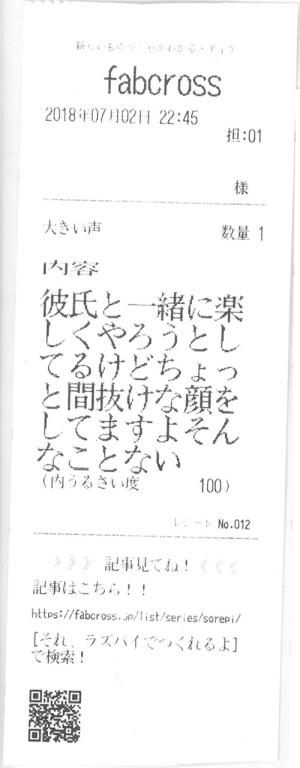 新しいものづくりがわかるメディア
fabcross
2018年07月02日 22:45
担:01
様
大きい声 数量 1
内容
彼氏と一緒に楽
しくやろうとし
てるけどちょっ
と間抜けな顔を
してますよそん
なことない
(内うるさい度 100)
レシート No.012
》》》 記事見てね！ 《《《
記事はこちら！！
https://fabcross.jp/list/series/sorepi/
[それ、ラズパイでつくれるよ]
で検索！